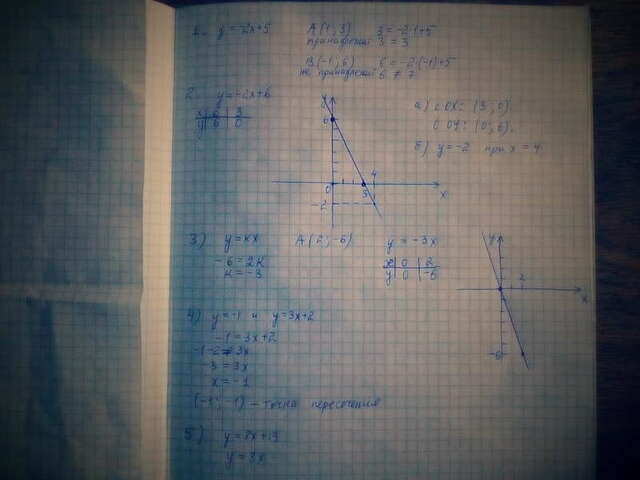 1. y = -2x+5 A(1; 3) 3 = -2·1+5
принадлежит 3 = 3
B(-1; 6) 6 = -2·(-1)+5
не принадлежит 6 ≠ 7
2. y = -2x+6
x 0 3
y 6 0
а) с OX: (3; 0)
с OY: (0; 6).
б) y = -2 при x = 4.
y
6
0 3 4 x
-2
3) y = kx A(2; -6) y = -3x
-6 = 2k
k = -3
x 0 2
y 0 -6
y
2
x
-6
4) y = -1 и y = 3x+2
-1 = 3x+2
-1-2 = 3x
-3 = 3x
x = -1
(-1; -1) – точка пересечения
5)
y = 8x